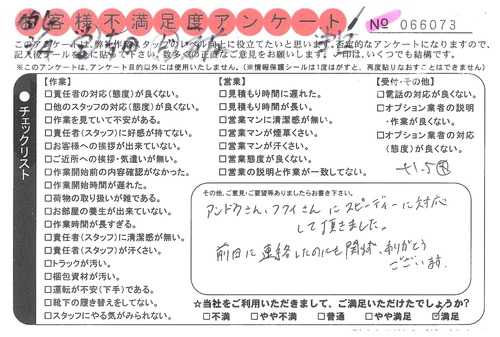 お客様不満足度アンケート! No 066073
このアンケートは、弊社作業スタッフのレベル向上に役立てたいと思います。否定的なアンケートになりますので、
記入後シールを
※このアンケートは、アンケート目的以外には使用いたしません。(※情報保護シールは1度はがすと、再度貼りなおすことはできません)
●チェックリスト
【作業】
□責任者の対応(態度)が良くない。
□他のスタッフの対応(態度)が良くない。
□作業を見ていて不安がある。
□責任者(スタッフ)に好感が持てない。
□お客様への挨拶が出来ていない。
□ご近所への挨拶・気遣いが無い。
□作業開始前の内容確認がなかった。
□作業開始時間が遅れた。
□荷物の取り扱いが雑である。
□お部屋の養生が出来ていない。
□作業時間が長すぎる。
□責任者(スタッフ)に清潔感が無い。
□責任者(スタッフ)が汗くさい。
□トラックが汚い。
□梱包資材が汚い。
□運転が不安(下手)である。
□靴下の履き替えをしてない。
□スタッフにやる気がみられない。
【営業】
□見積もり時間に遅れた。
□見積もり時間が長い。
□営業マンに清潔感が無い。
□営業マンが煙草くさい。
□営業マンが汗くさい。
□営業態度が良くない。
□営業の説明と作業が一致してない。
【受付・その他】
□電話の対応が良くない。
□オプション業者の説明
・作業が良くない。
□オプション業者の対応
(態度)が良くない。
その他、ご意見・ご要望等ありましたらお書き下さい。
アンドウさん、フクイさんにスピーディーに対応
して頂きました。
前日に連絡したのにも関わず、ありがとう
ございます。
☆当社をご利用いただきまして、ご満足いただけたでしょうか?
□不満 □やや不満 □普通 □やや満足 ☑満足